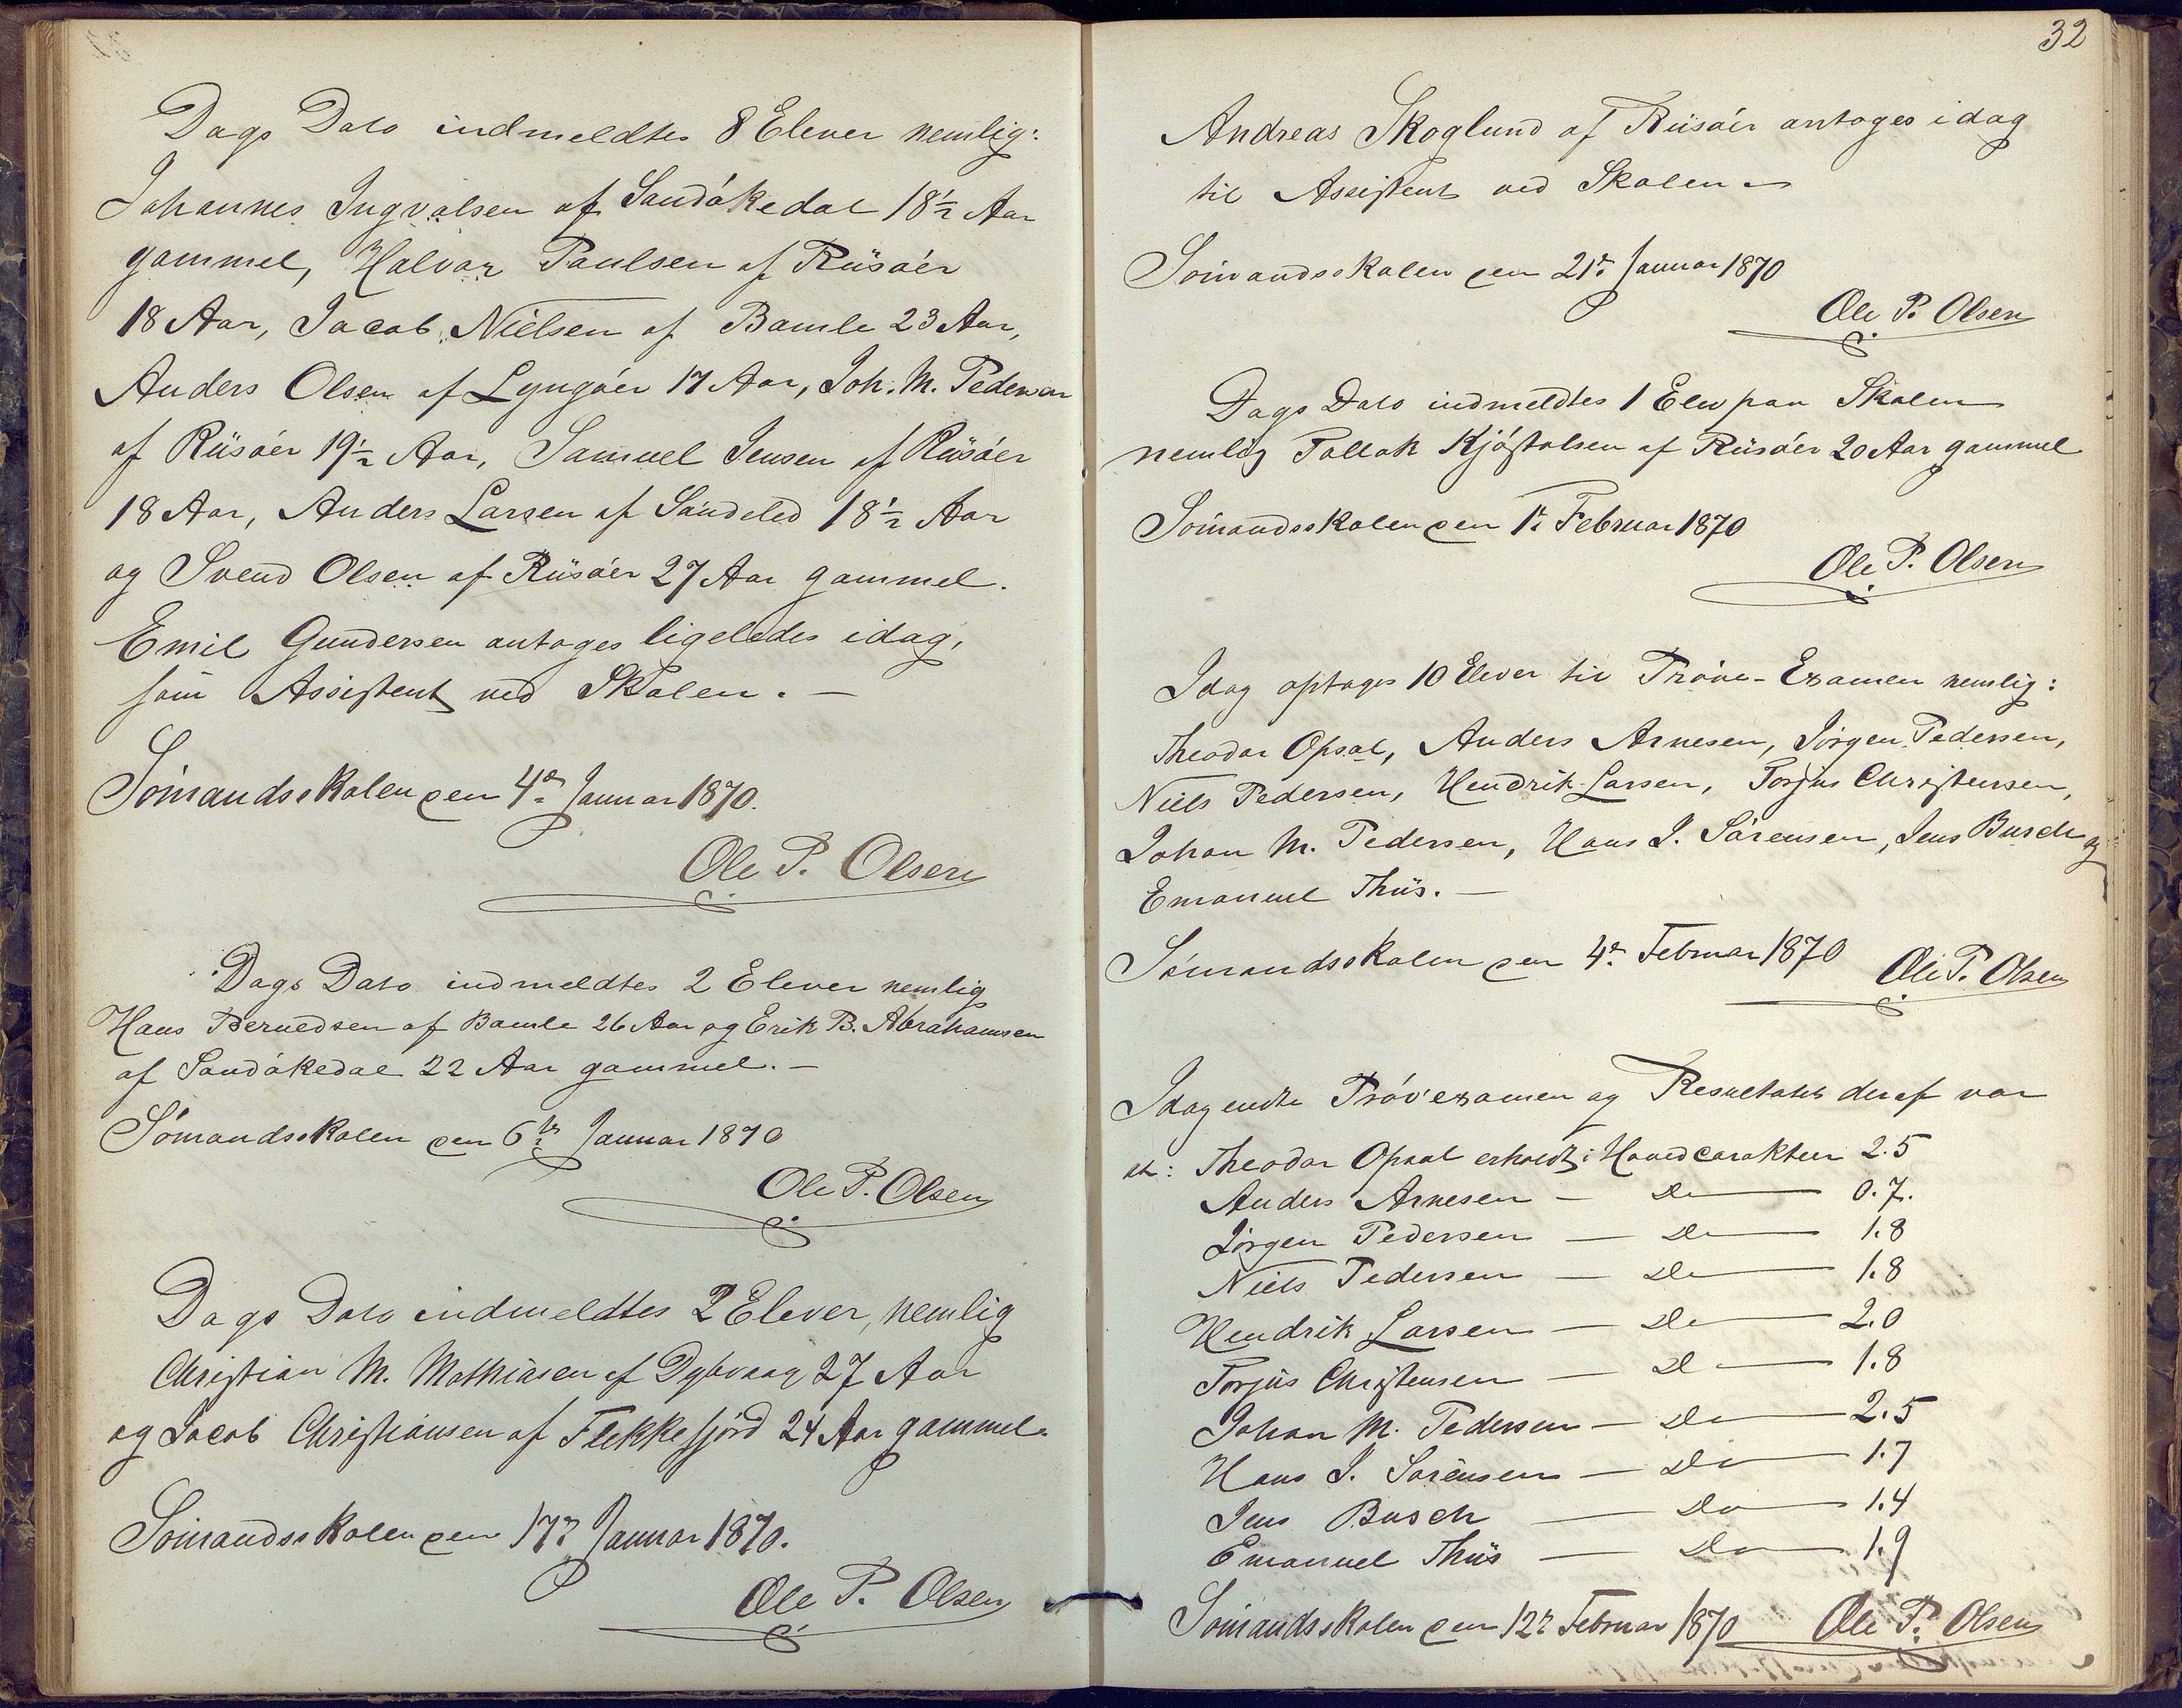 Dags Dato indmeldtes 8 Elever nemlig:
Johannes Ingvalsen af Sandökedal 18½ Aar
gammel, Halvar Paulsen af Riisöer
18 Aar, Jacob Nielsen af Bamle 23 Aar,
Anders Olsen af Lyngöer 17 Aar, Joh. M. Pedersen
af Riisöer 19½ Aar, Samuel Jensen af Riisöer
18 Aar, Anders Larsen af Söndeled 18½ Aar
og Svend Olsen af Riisöer 27 Aar gammel.
Emil Gundersen antoges ligeledes idag,
som Assistent ved Skolen. —
Sömandsskolen den 4de Januar 1870.
Ole P. Olsen
Dags Dato indmeldtes 2 Elever nemlig
Hans Berndsen af Bamle 26 Aar og Erik B. Abrahamsen
af Sandökedal 22 Aar gammel. —
Sömandsskolen den 6te Januar 1870
Ole P. Olsen
Dags Dato indmeldtes 2 Elever, nemlig
Christian M. Mathiasen af Dybvaag 27 Aar
og Jacob Christiansen af Flekkefjord 24 Aar gammel.
Sömandsskolen den 17de Januar 1870.
Ole P. Olsen
32
Andreas Skoglund af Riisöer antoges idag
til Assistent ved Skolen
Sömandsskolen den 21de Januar 1870
Ole P. Olsen
Dags Dato indmeldtes 1 Elev paa Skolen
nemlig Tallak Kjöstolsen af Riisöer 20 Aar gammel
Sömandsskolen den 1te Februar 1870
Ole P. Olsen
Idag optages 10 Elever til Pröve-Examen nemlig:
Theodor Opsal, Anders Arnesen, Jörgen Pedersen,
Niels Pedersen, Hendrik Larsen, Torjus Christensen,
Johan M. Pedersen, Hans J. Sörensen, Jens Busch og
Emanuel Thiis. —
Sömandsskolen den 4de Februar 1870 Ole P. Olsen
Idag endte Pröveexamen og Resultatet deraf var
at: Theodor Opsal erholdt i Hovedcarakteer 2.5
Anders Arnesen — Do — 0.7.
Jörgen Pedersen — Do — 1.8
Niels Pedersen — Do — 1.8
Hendrik Larsen — Do — 2.0
Torjus Christensen — Do — 1.8
Johan M. Pedersen — Do — 2.5
Hans J. Sörensen — Do — 1.7
Jens Busch — Do — 1.4
Emanuel Thiis — Do — 1.9
Sömandsskolen den 12te Februar 1870 Ole P. Olsen